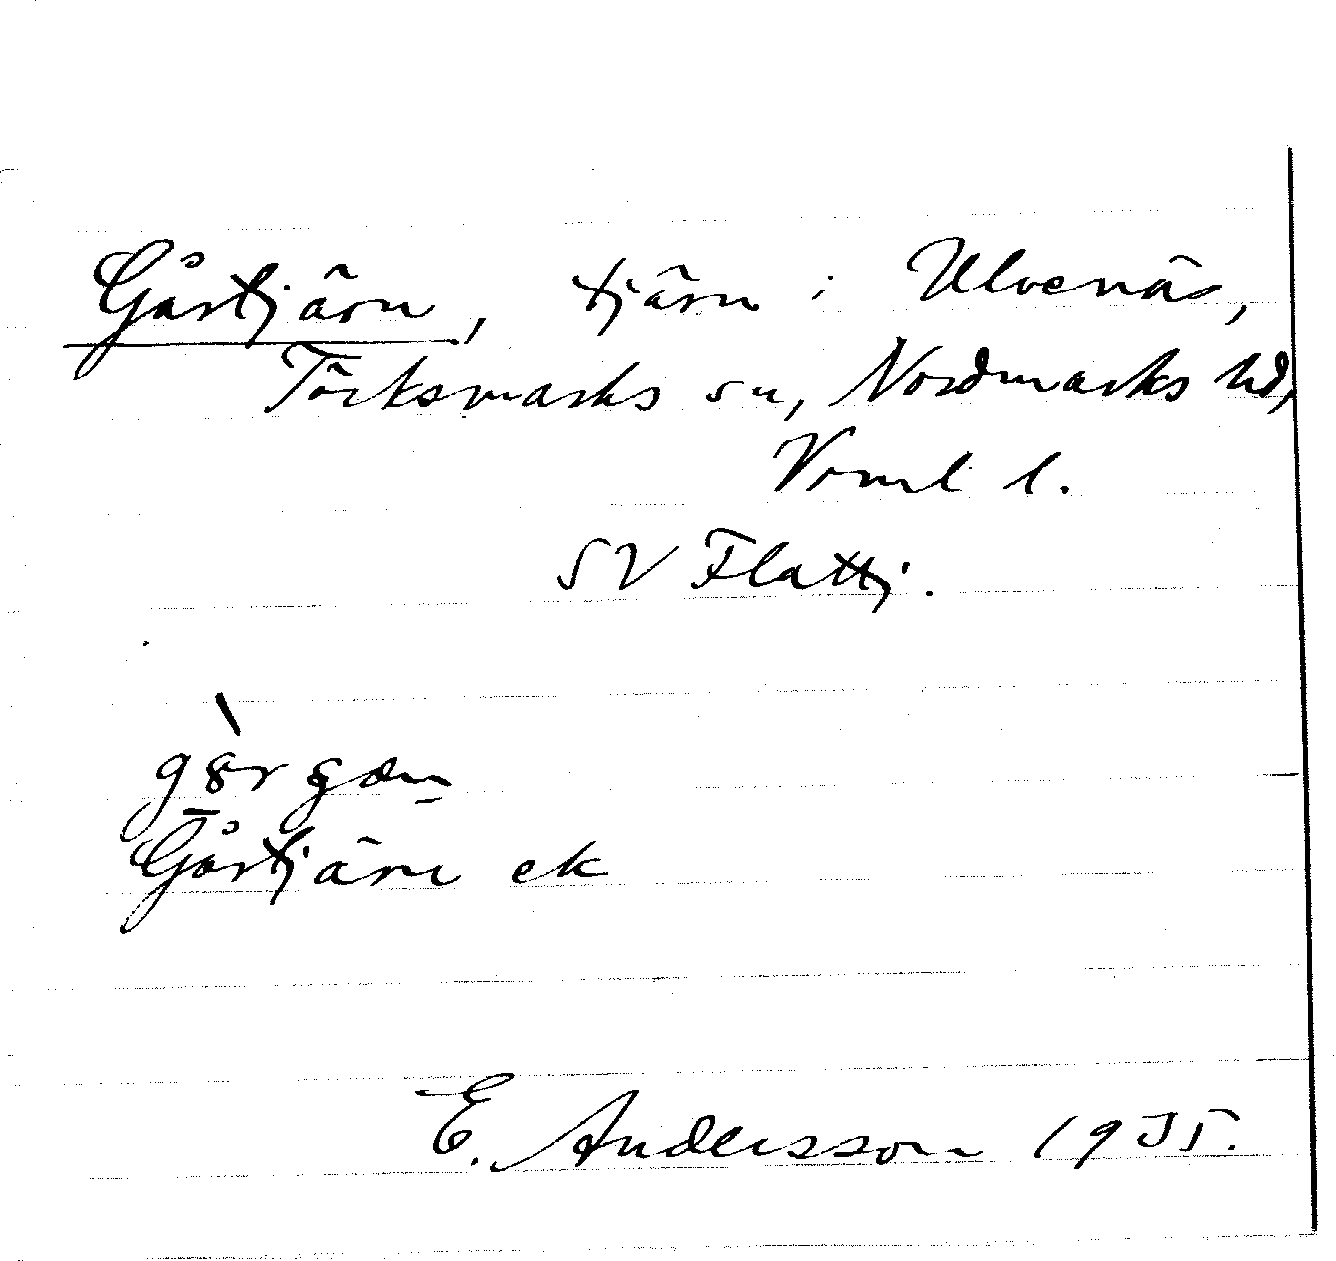 Gårtjärn, tjärn i Ulvenäs,
Töcksmarks sn, Nordmarks hd,
Vrml l.
SV Flattj.
Gårtjärn ek
E. Andersson 1935.